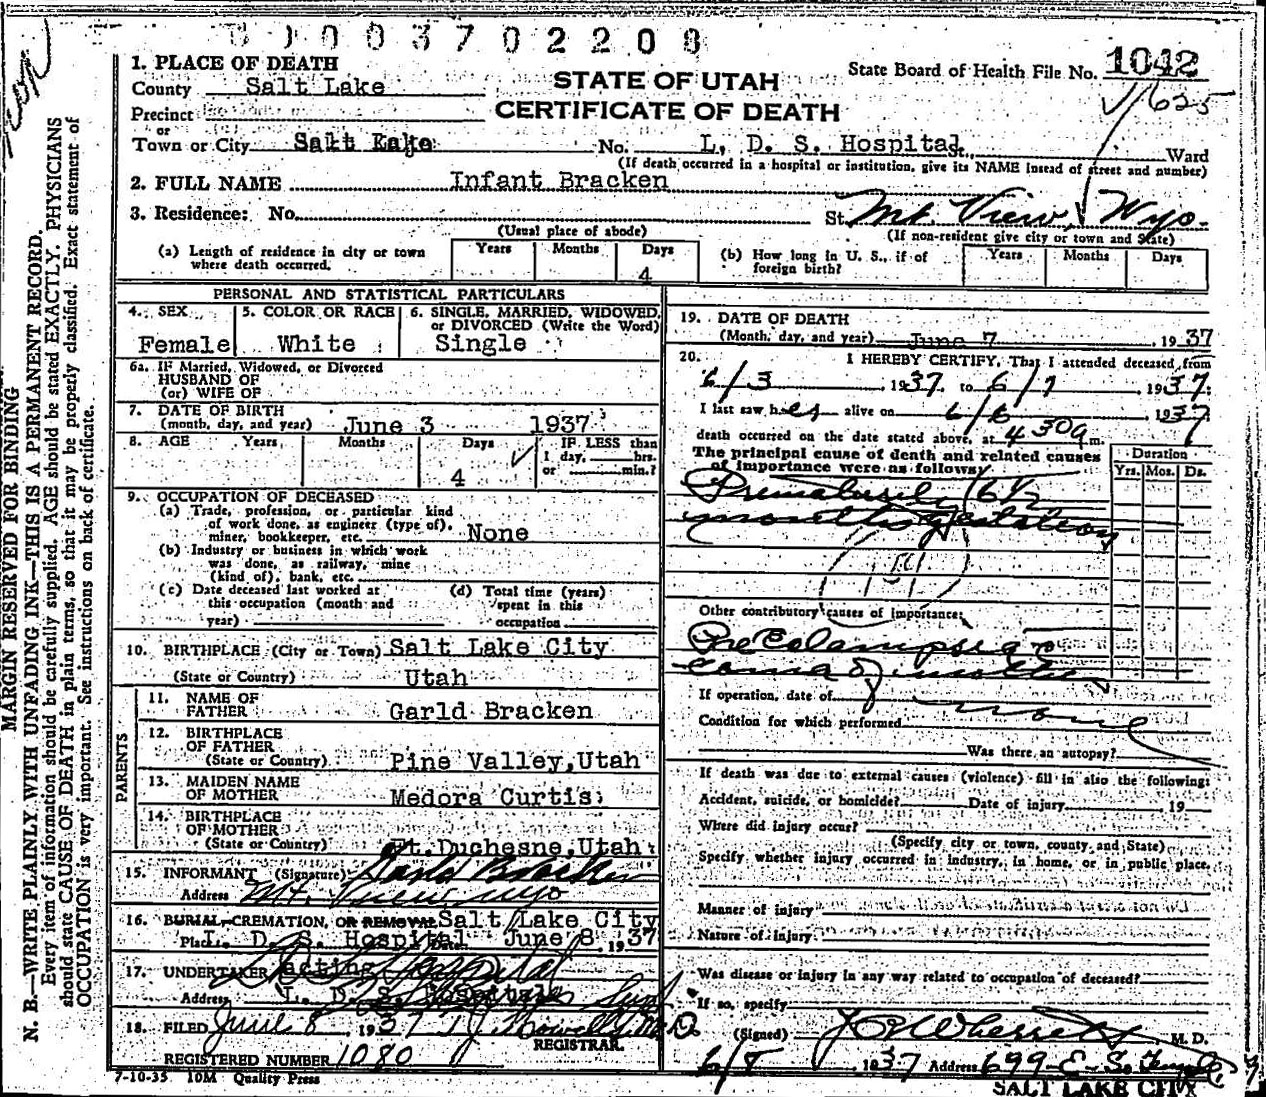 003702208
1. PLACE OF DEATH
County Salt Lake
STATE OF UTAH
CERTIFICATE OF DEATH
State Board of Health File No. 1042
625
Precinct
or
Town or City Salt Lake No. L. D. S. Hospital St., Ward
(If death occurred in a hospital or institution, give its NAME instead of street and number)
2. FULL NAME Infant Bracken
3. Residence: No. St. Mt. View, Wyo.
(Usual place of abode) (If non-resident give city or town and State)
(a) Length of residence in city or town where death occurred. Years Months Days 4
(b) How long in U. S., if of foreign birth? Years Months Days
PERSONAL AND STATISTICAL PARTICULARS
4. SEX Female
5. COLOR OR RACE White
6. SINGLE, MARRIED, WIDOWED, or DIVORCED (Write the Word) Single
6a. IF Married, Widowed, or Divorced
HUSBAND OF
(or) WIFE OF
7. DATE OF BIRTH
(month, day, and year) June 3 1937
8. AGE Years Months Days 4
IF LESS than 1 day, hrs. or min.?
9. OCCUPATION OF DECEASED
(a) Trade, profession, or particular kind
of work done, as engineer (type of),
miner, bookkeeper, etc. None
(b) Industry or business in which work
was done, as railway, mine
(kind of), bank, etc.
(c) Date deceased last worked at
this occupation (month and
year)
(d) Total time (years)
spent in this
occupation
10. BIRTHPLACE (City or Town) Salt Lake City
(State or Country) Utah
PARENTS
11. NAME OF FATHER Garld Bracken
12. BIRTHPLACE OF FATHER
(State or Country) Pine Valley, Utah
13. MAIDEN NAME OF MOTHER Medora Curtis
14. BIRTHPLACE OF MOTHER
(State or Country) Ft. Duchesne, Utah
15. INFORMANT (Signature) Garld Bracken
Address Mt. View Wyo
16. BURIAL, CREMATION, OR REMOVAL Salt Lake City
Place L. D. S. Hospital Date June 8, 1937
17. UNDERTAKER Acting
Address L. D. S. Hospital
18. FILED June 8 1937
REGISTRAR.
REGISTERED NUMBER 1080
7-10-35 10M Quality Press
19. DATE OF DEATH
(Month, day, and year) June 7, 1937
20. I HEREBY CERTIFY, That I attended deceased from
6/3, 1937, to 6/7 1937:
I last saw her alive on 6/6 1937
death occurred on the date stated above, at 4 30a m.
The principal cause of death and related causes
of importance were as follows:
Duration
Yrs. Mos. Ds.
Prematurely (6 1/2
months gestation)
Other contributory causes of importance:
Pre Eclampsia &
coma of mother
If operation, date of none
Condition for which performed
Was there an autopsy?
If death was due to external causes (violence) fill in also the following:
Accident, suicide, or homicide? Date of injury , 19
Where did injury occur?
(Specify city or town, county and State)
Specify whether injury occurred in industry, in home, or in public place.
Manner of injury
Nature of injury
Was disease or injury in any way related to occupation of deceased?
If so, specify
(Signed) J R Wherritt, M. D.
6/8 1937 Address 699 E. S. Temple
SALT LAKE CITY
MARGIN RESERVED FOR BINDING
N. B.—WRITE PLAINLY, WITH UNFADING INK—THIS IS A PERMANENT RECORD.
Every item of information should be carefully supplied. AGE should be stated EXACTLY. PHYSICIANS
should state CAUSE OF DEATH in plain terms, so that it may be properly classified. Exact statement of
OCCUPATION is very important. See instructions on back of certificate.